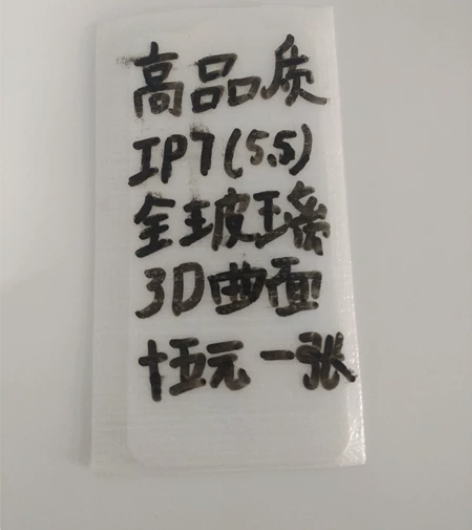 高品质
IP7(5.5)
全玻璃
3D曲面
十五元一张